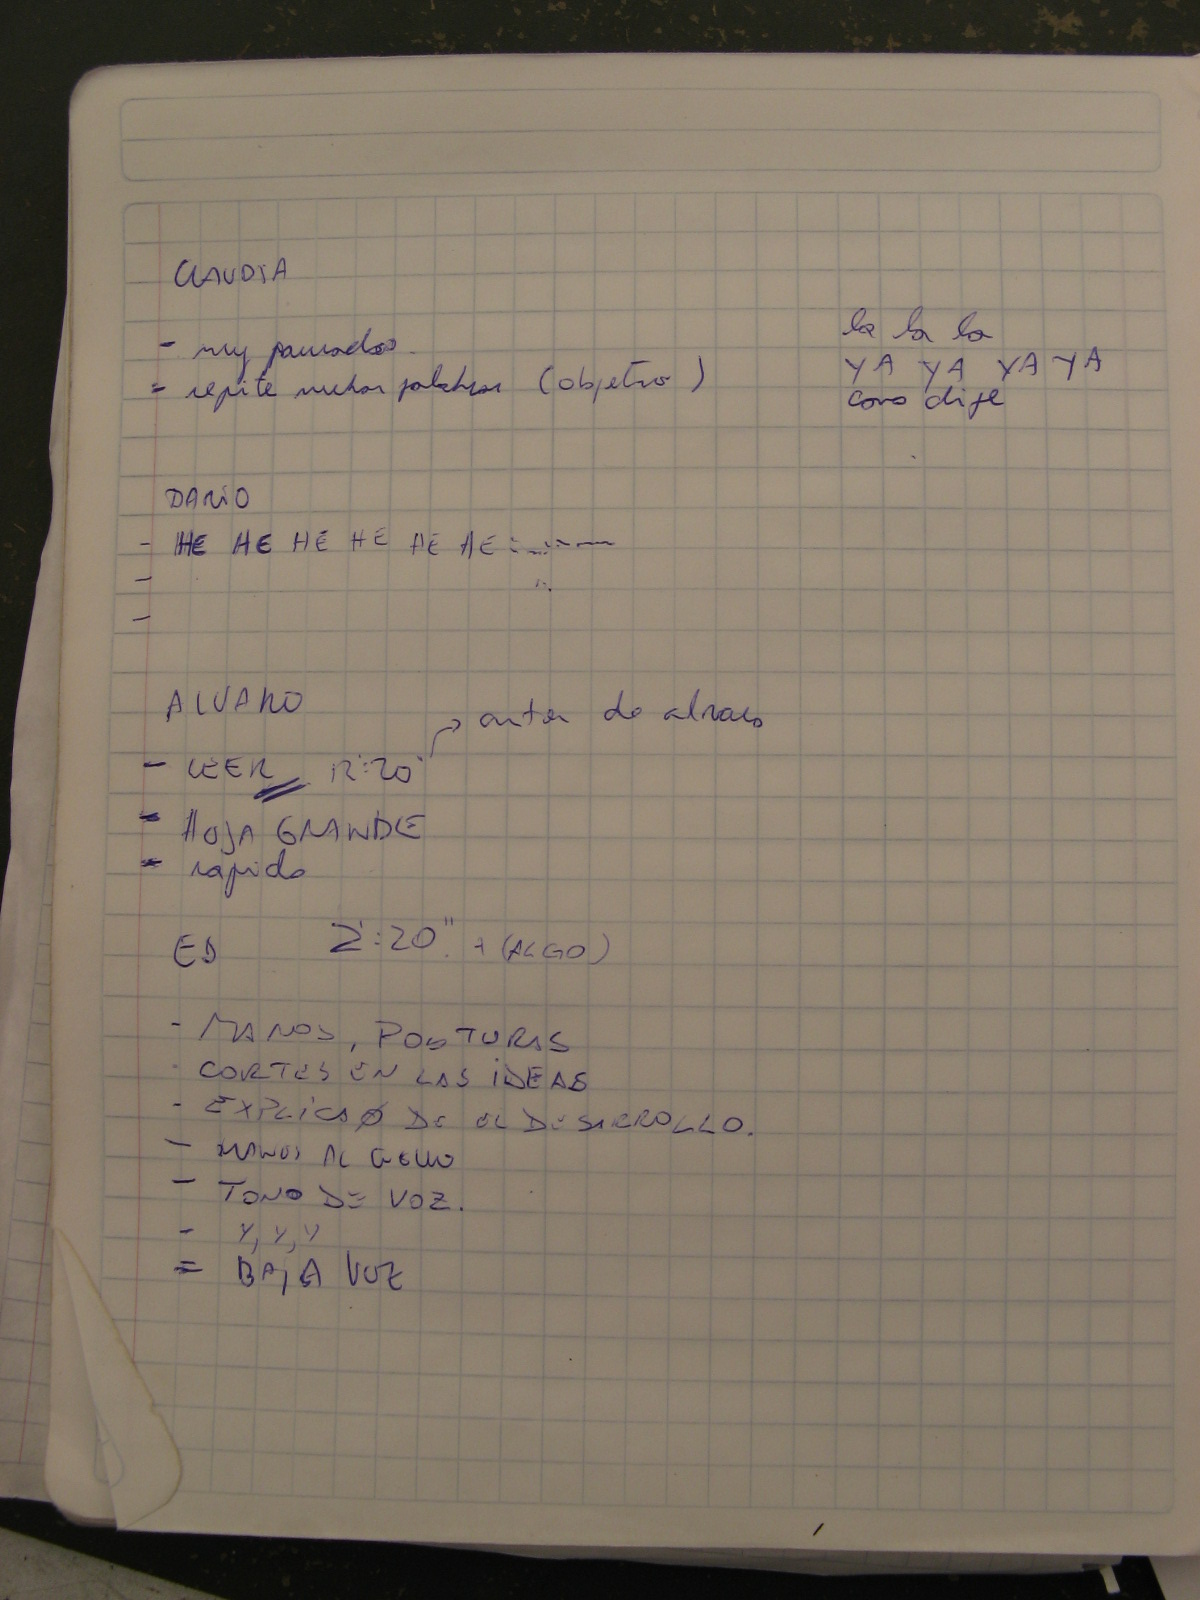 CLAUDIA
- muy pausados.
- repite muchas palabras (objetivo)
la la la
YA YA YA YA
como dije
DARIO
- HE HE HE HE HE HE
-
-
ALVARO
antes de
- LEER 12:20
- HOJA GRANDE
- rapido
ED 2':20" + (ALGO)
- MANOS, POSTURAS
- CORTES EN LAS IDEAS
- EXPLICAO DE EL DESARROLLO.
- MANOS AL CUELLO
- TONO DE VOZ.
- Y, Y, Y
- BAJA VOZ